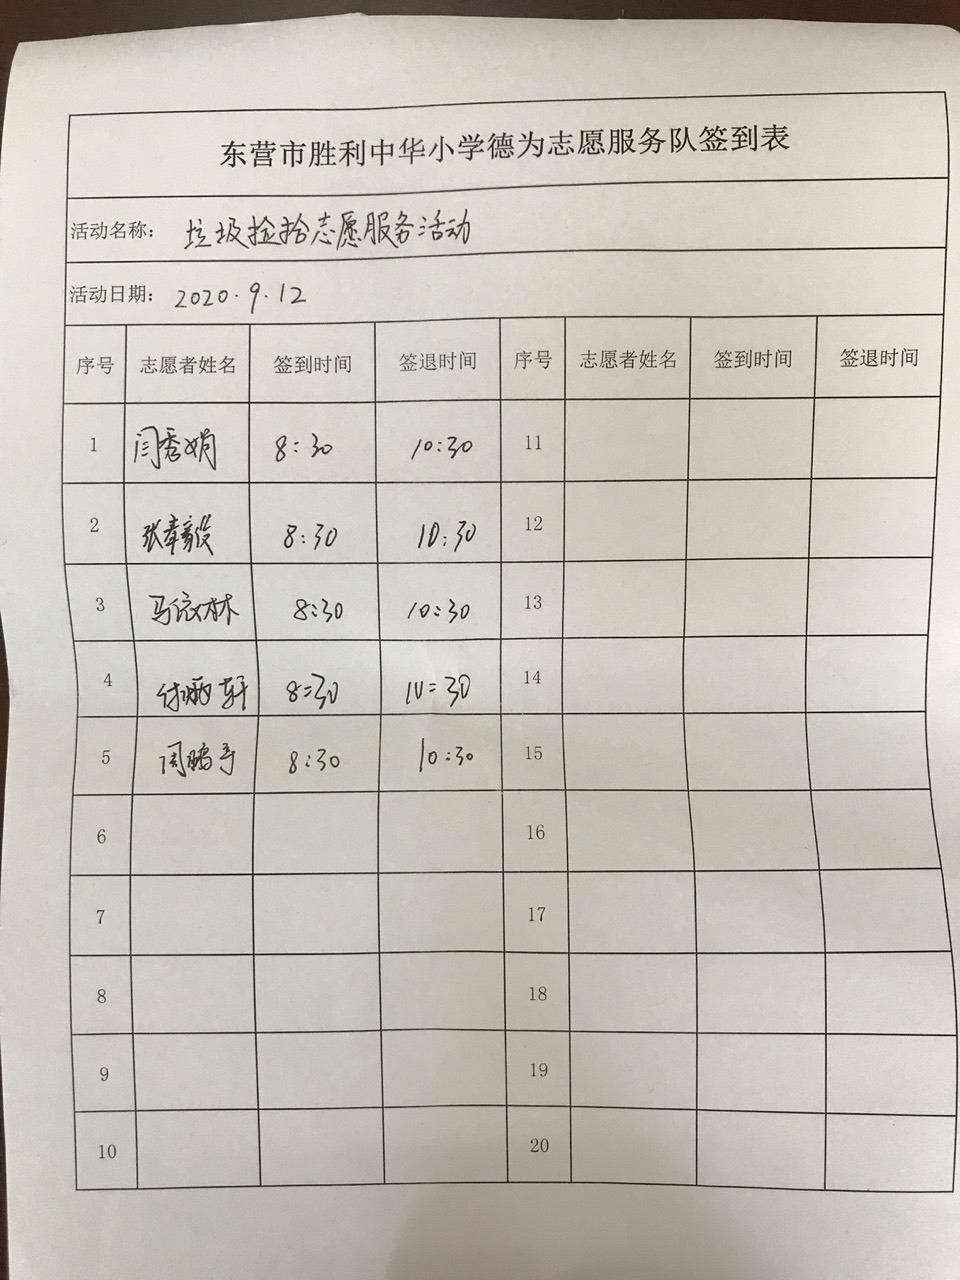 东营市胜利中华小学德为志愿服务队签到表
活动名称： 垃圾捡拾志愿服务活动
活动日期： 2020.9.12
序号 志愿者姓名 签到时间 签退时间 序号 志愿者姓名 签到时间 签退时间
1 闫秀娟 8:30 10:30 11
2 张奉毅 8:30 10:30 12
3 马依林 8:30 10:30 13
4 8:30 10:30 14
5 8:30 10:30 15
6 16
7 17
8 18
9 19
10 20